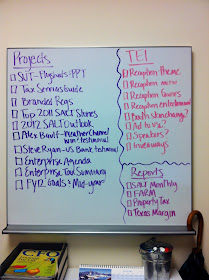 Projects
SUT-Flysheets:PPT
Tax Services Guide
Branded Regs
Top 2011 SALT Stories
2012 SALT Outlook
Alex Bant-Weather Channel
win testimonial
Steve Ryan-US Bank testimonial
Enterprise Agenda
Enterprise Tax Summary
FY12 Goals Mid-year
TEI
Reception theme
Reception menu
Reception favors
Reception entertainment
Booth skin change?
Ad to use?
Speakers?
Giveaways
Reports
SALT Monthly
FARM
Property Tax
Texas Margin